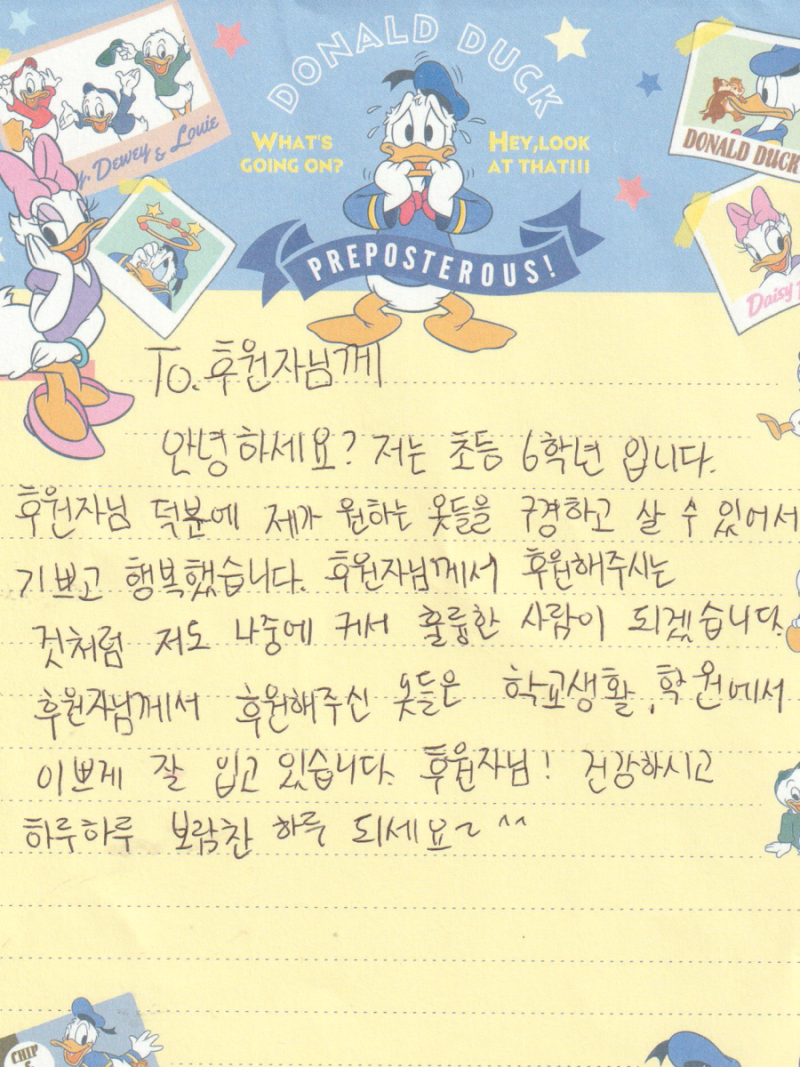 DONALD DUCK
WHAT'S
GOING ON?
HEY,LOOK
AT THAT!!!
PREPOSTEROUS!
Dewey & Louie
DONALD DUCK
Daisy
To.후원자님께
안녕하세요? 저는 초등 6학년 입니다.
후원자님 덕분에 제가 원하는 옷들을 구경하고 살 수 있어서
기쁘고 행복했습니다. 후원자님께서 후원해주시는
것처럼 저도 나중에 커서 훌륭한 사람이 되겠습니다.
후원자님께서 후원해주신 옷들은 학교생활,학원에서
이쁘게 잘 입고 있습니다. 후원자님! 건강하시고
하루하루 보람찬 하루 되세요~ ^^
CHIP
&